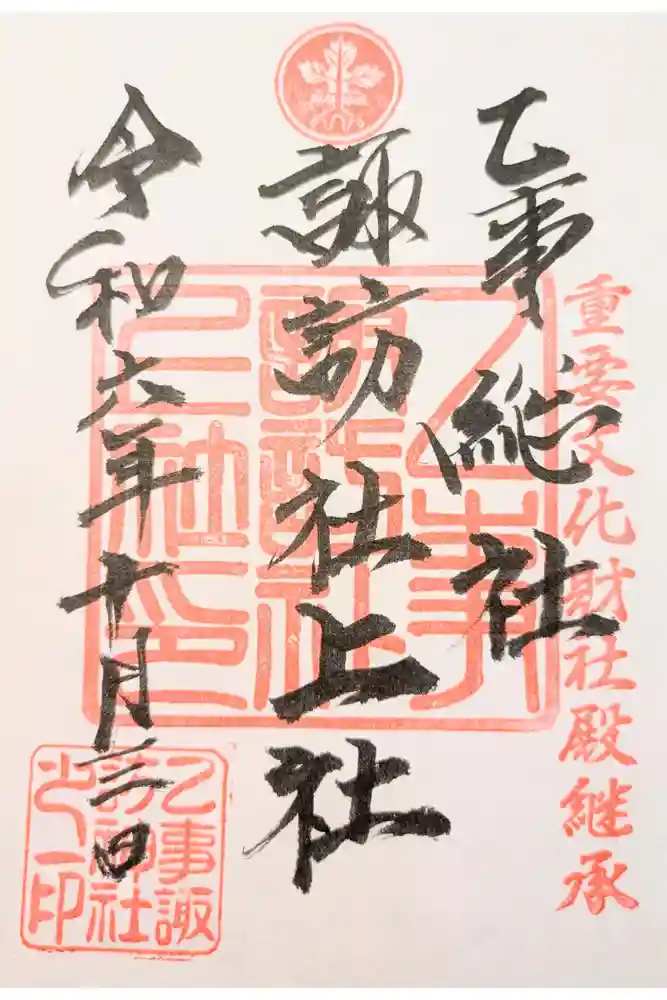 重要文化財社殿継承
乙事総社
諏訪社上社
令和六年十月三日
乙事
諏訪社
上社印
乙事諏
訪神社
之印